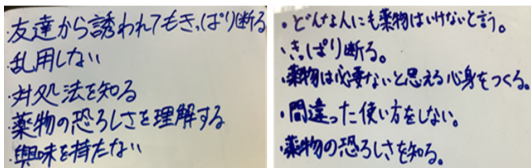 ・友達から誘われてもきっぱり断る
・乱用しない
・対処法を知る
・薬物の恐ろしさを理解する
・興味を持たない
・どんな人にも薬物はいけないと言う。
・きっぱり断る。
・薬物は必要ないと思える心身をつくる。
・間違った使い方をしない。
・薬物の恐ろしさを知る。